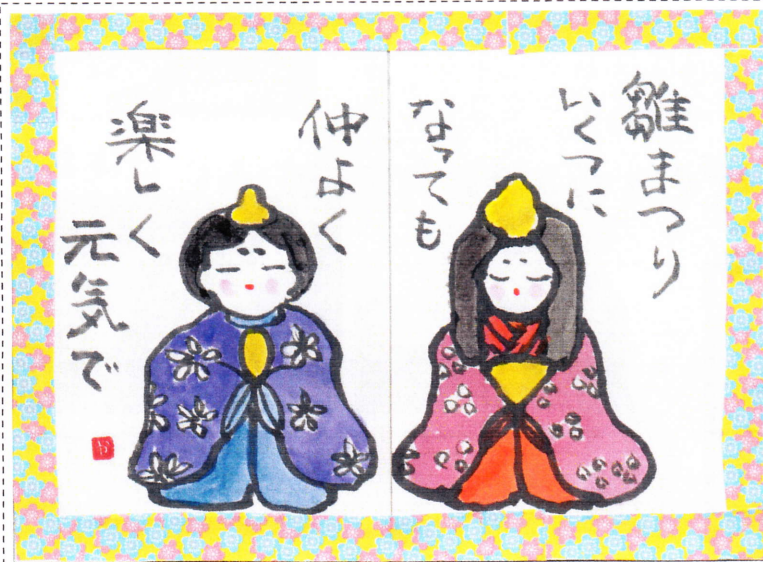 雛まつり
いくつに
なっても
仲よく
楽しく
元気で